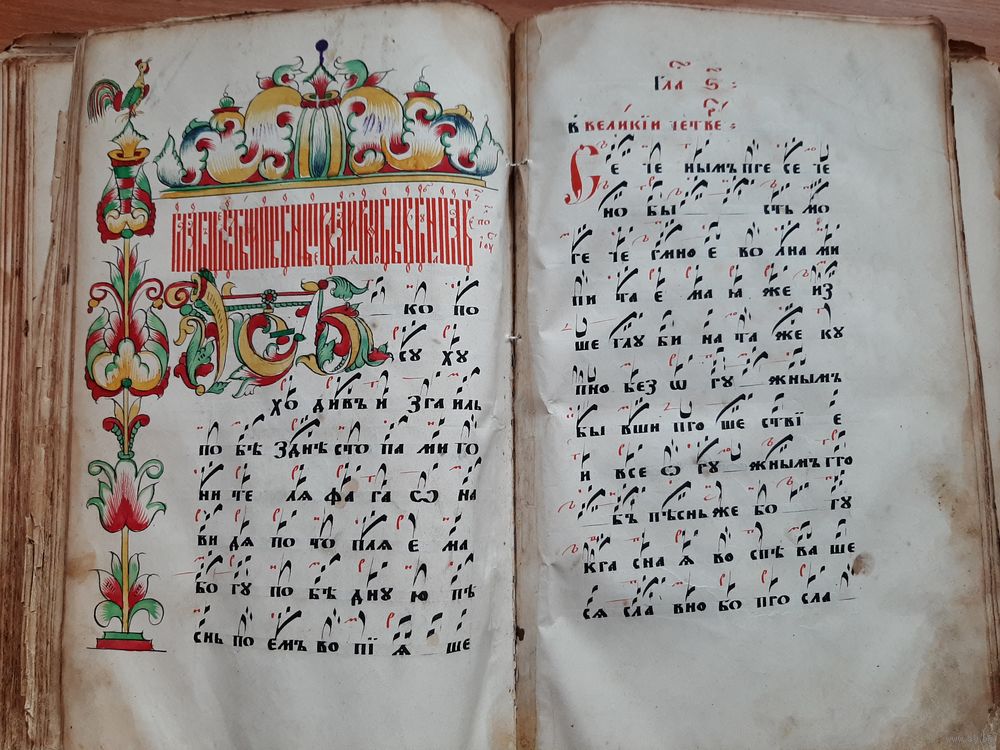 ко по
сꙋ хꙋ
хо дивъ и зра иль
по бѣ зднѣ сто па ми го
ни те лѧ фа ра ѡ на
ви дѧ по то плѧ е ма
бо гꙋ по бѣ днꙋ ю пѣ
снь по емъ во пі ѧ ше
Гла ѕ:
в великїи четве:
Се че нымъ пре се че
но бы сть мо
ре че рмно е во лна ми
пи та е ма ѧ же из
ше глꙋ би на та же кꙋ
пно без ѡ рꙋ жнымъ
бы вши про ше стві е
и все ѡ рꙋ жнымъ гро
бъ пѣснь же бо гꙋ
кра сна ѧ во спѣ ва ше
сѧ сла вно бо про сла